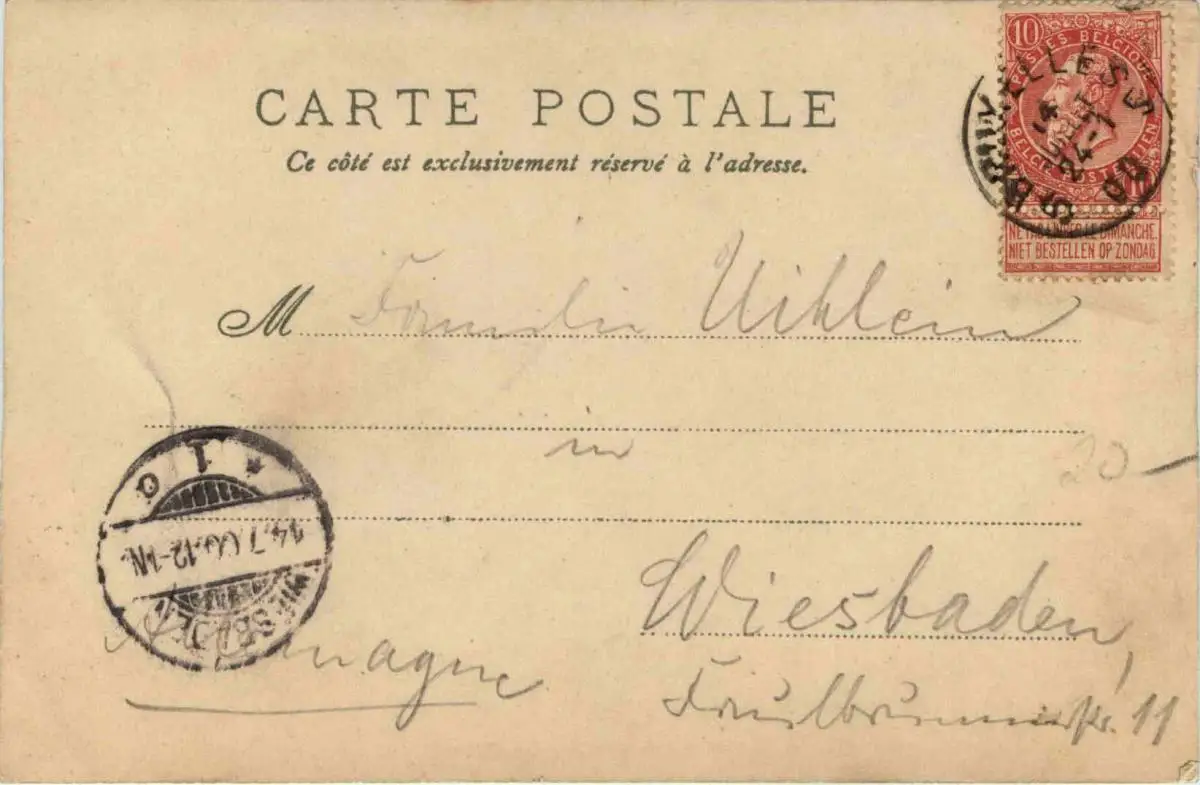 CARTE POSTALE
Ce côté est exclusivement réservé à l'adresse.
10
POSTES BELGIQUE
BELGIE POSTERIJEN
10
NE PAS LIVRER LE DIMANCHE
NIET BESTELLEN OP ZONDAG
BRUXELLES
14
24-7
00
M Familie Uihlein
in
20
Wiesbaden,
Faulbrunnenstr. 11
Allemagne
WIESBADEN
14.7.00.12-1N.
1